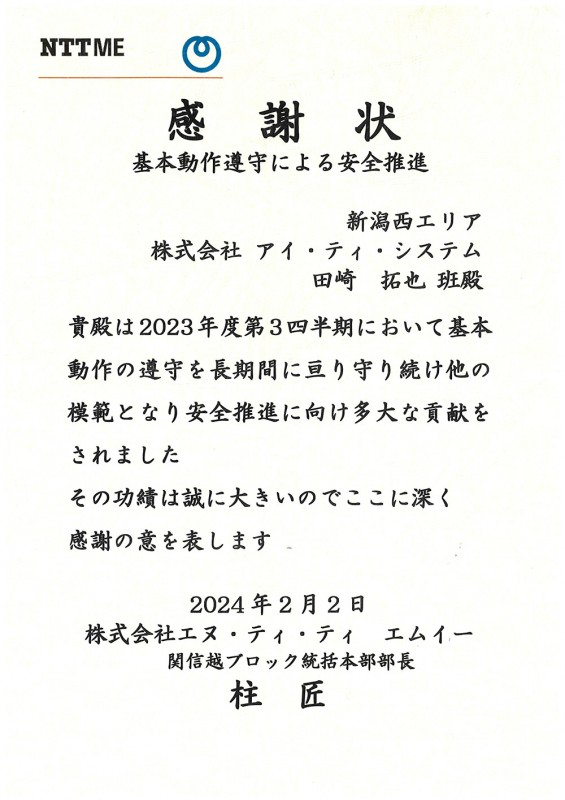 NTT ME
感謝状
基本動作遵守による安全推進
新潟西エリア
株式会社 アイ・ティ・システム
田崎 拓也 班殿
貴殿は2023年度第3四半期において基本
動作の遵守を長期間に亘り守り続け他の
模範となり安全推進に向け多大な貢献を
されました
その功績は誠に大きいのでここに深く
感謝の意を表します
2024年2月2日
株式会社エヌ・ティ・ティ エムイー
関信越ブロック統括本部部長
柱 匠